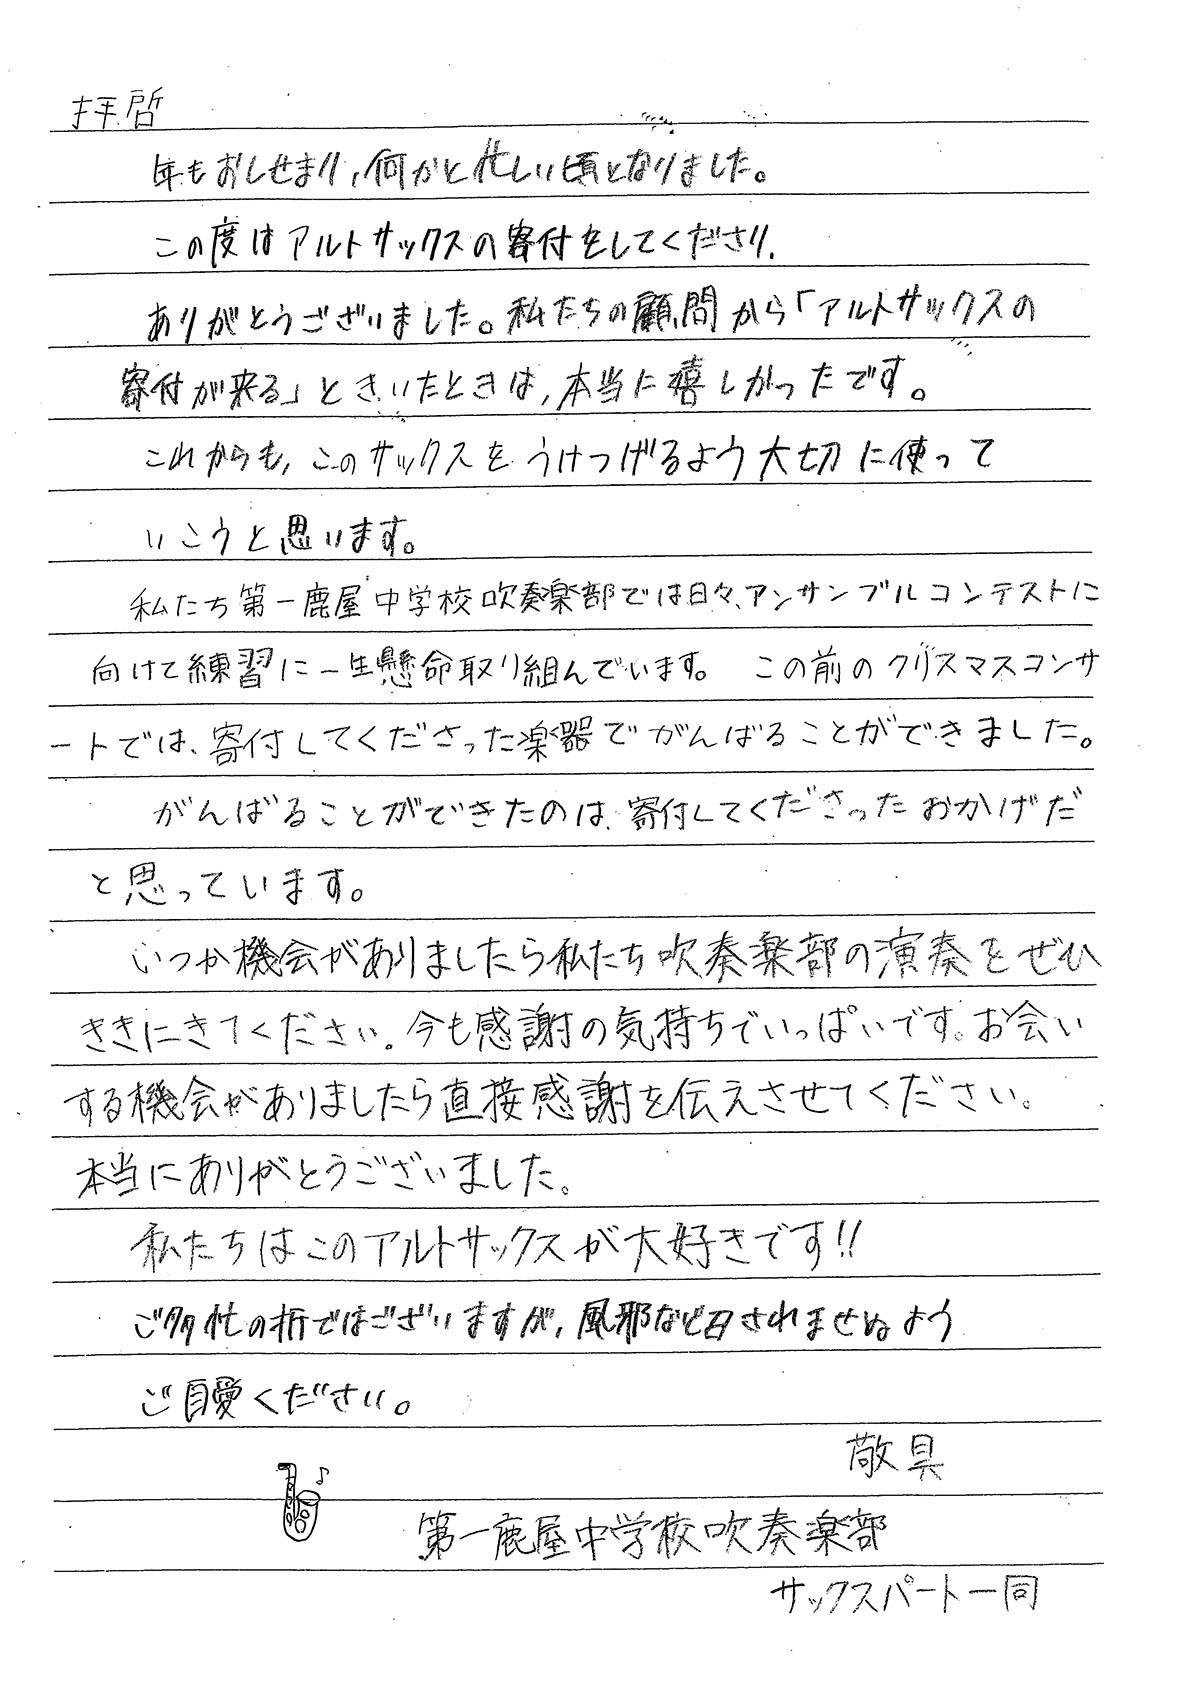 拝啓
年もおしせまり、何かと忙しい頃となりました。
この度はアルトサックスの寄付をしてくださり、
ありがとうございました。私たちの顧問から「アルトサックスの
寄付が来る」ときいたときは、本当に嬉しかったです。
これからも、このサックスをうけつげるよう大切に使って
いこうと思います。
私たち第一鹿屋中学校吹奏楽部では日々、アンサンブルコンテストに
向けて練習に一生懸命取り組んでいます。 この前のクリスマスコンサ
ートでは、寄付してくださった楽器でがんばることができました。
がんばることができたのは、寄付してくださったおかげだ
と思っています。
いつか機会がありましたら私たち吹奏楽部の演奏をぜひ
ききにきてください。今も感謝の気持ちでいっぱいです。お会い
する機会がありましたら直接感謝を伝えさせてください。
本当にありがとうございました。
私たちはこのアルトサックスが大好きです!!
ご多忙の折ではございますが、風邪など召されませぬよう
ご自愛ください。
敬具
第一鹿屋中学校吹奏楽部
サックスパート一同